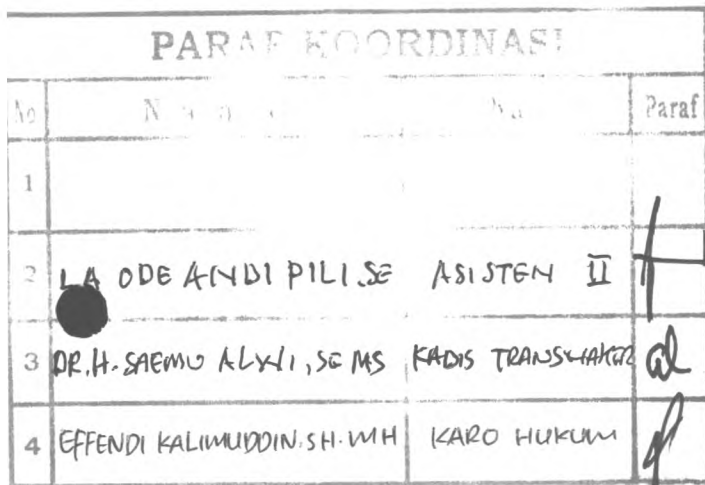 PARAF KOORDINASI
No Paraf
1
2 LA ODE ANDI PILI.SE ASISTEN II
3 DR.H.SAEMU ALWI, SE MS KADIS TRANSNAKER
4 EFFENDI KALIMUDDIN.SH.MH KARO HUKUM